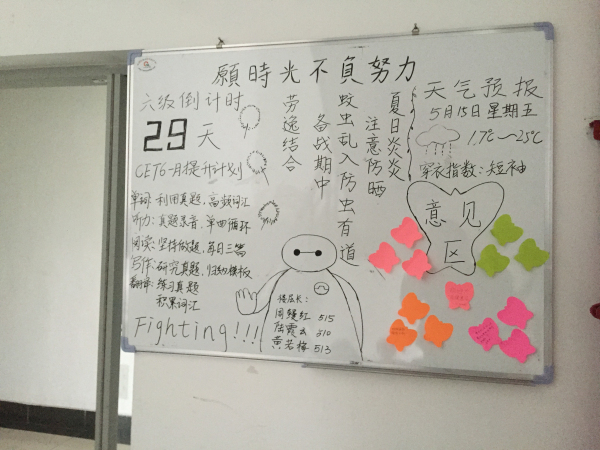 願時光不負努力
六级倒计时
29天
CET6一月提升计划
单词:利用真题,高频词汇
听力:真题录音,单曲循环
阅读:坚持做题,每日三篇
写作:研究真题,归纳模板
翻译:练习真题
积累词汇
Fighting!!!
劳逸结合
备战期中
蚊虫乱入防虫有道
夏日炎炎
注意防晒
天气预报
5月15日星期五
17℃~25℃
穿衣指数:短袖
意见
区
楼层长:
515
510
513